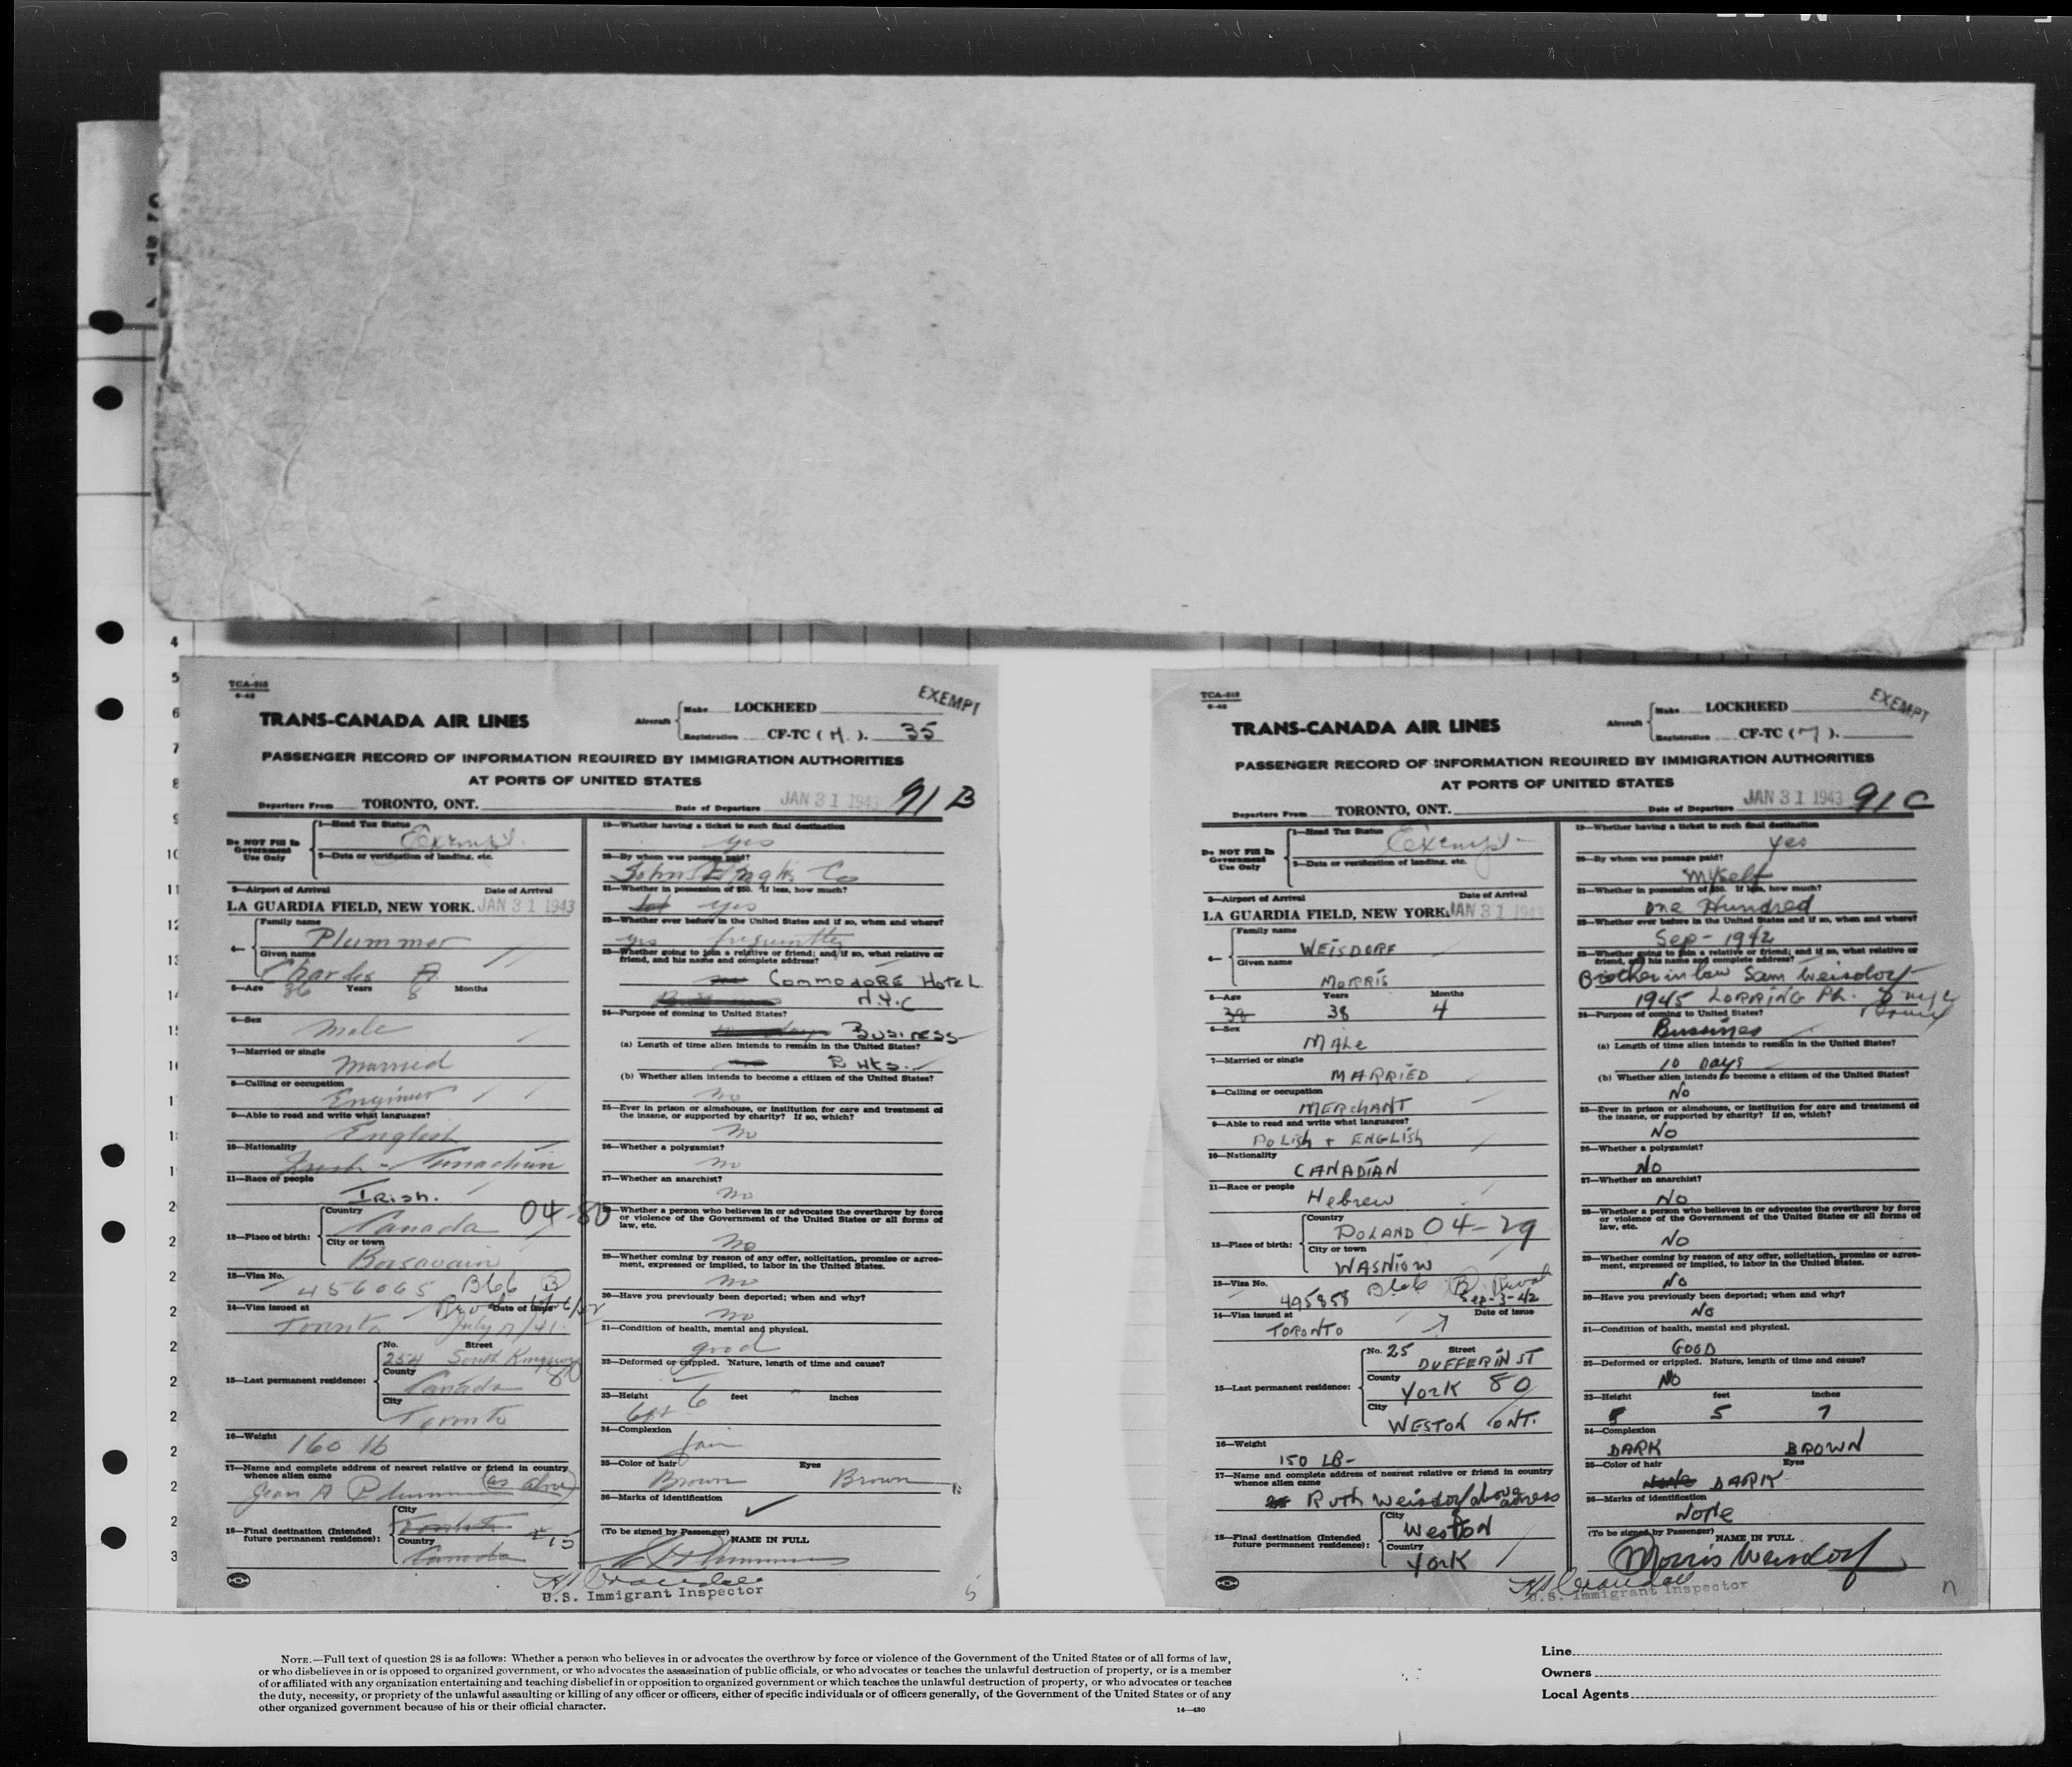 4
5
6
7
8
9
10
11
12
13
14
TCA-313
6-42
EXEMPT
TRANS-CANADA AIR LINES
Aircraft Make LOCKHEED
Registration CF-TC (H). 35
PASSENGER RECORD OF INFORMATION REQUIRED BY IMMIGRATION AUTHORITIES
AT PORTS OF UNITED STATES
91 B
Departure From TORONTO, ONT. Date of Departure JAN 31 1943
Do NOT Fill In Government Use Only
1—Head Tax Status Exempt
2—Data or verification of landing, etc.
3—Airport of Arrival Date of Arrival
LA GUARDIA FIELD, NEW YORK. JAN 31 1943
4— Family name
Plummer
Given name
Charles A
5—Age 36 Years 5 Months
6—Sex
Male
7—Married or single
Married
8—Calling or occupation
Engineer
9—Able to read and write what languages?
English
10—Nationality
Irish - Canadian
11—Race or people
Irish.
12—Place of birth: Country
Canada 04-80
City or town
Boissevain
13—Visa No.
456065 Bl66 B
14—Visa issued at Date of issue
Toronto July 17/41
15—Last permanent residence: No. Street
254 South Kingsway
County
Canada 80
City
Toronto
16—Weight 160 lb
17—Name and complete address of nearest relative or friend in country whence alien came
Jean A Plummer (as above)
18—Final destination (Intended future permanent residence): City
Toronto
Country
Canada
19—Whether having a ticket to such final destination
yes
20—By whom was passage paid?
John Inglis Co
21—Whether in possession of $50. If less, how much?
yes
22—Whether ever before in the United States and if so, when and where?
yes frequently
23—Whether going to join a relative or friend; and if so, what relative or friend, and his name and complete address?
Commodore Hotel
N.Y.C
24—Purpose of coming to United States?
Business
(a) Length of time alien intends to remain in the United States?
2 wks.
(b) Whether alien intends to become a citizen of the United States?
no
25—Ever in prison or almshouse, or institution for care and treatment of the insane, or supported by charity? If so, which?
no
26—Whether a polygamist?
no
27—Whether an anarchist?
no
28—Whether a person who believes in or advocates the overthrow by force or violence of the Government of the United States or all forms of law, etc.
no
29—Whether coming by reason of any offer, solicitation, promise or agreement, expressed or implied, to labor in the United States.
no
30—Have you previously been deported; when and why?
no
31—Condition of health, mental and physical.
good
32—Deformed or crippled. Nature, length of time and cause?
33—Height 6 feet inches
34—Complexion
fair
35—Color of hair Eyes
Brown Brown
36—Marks of identification
(To be signed by Passenger) NAME IN FULL
U.S. Immigrant Inspector
5
TCA-313
6-42
EXEMPT
TRANS-CANADA AIR LINES
Aircraft Make LOCKHEED
Registration CF-TC ( ).
PASSENGER RECORD OF INFORMATION REQUIRED BY IMMIGRATION AUTHORITIES
AT PORTS OF UNITED STATES
Departure From TORONTO, ONT. Date of Departure JAN 31 1943 91 C
Do NOT Fill In Government Use Only
1—Head Tax Status Exempt
2—Data or verification of landing, etc.
3—Airport of Arrival Date of Arrival
LA GUARDIA FIELD, NEW YORK. JAN 31 1943
4— Family name
WEISDORF
Given name
MORRIS
5—Age Years Months
38 38 4
6—Sex
MALE
7—Married or single
MARRIED
8—Calling or occupation
MERCHANT
9—Able to read and write what languages?
POLISH + ENGLISH
10—Nationality
CANADIAN
11—Race or people
Hebrew
12—Place of birth: Country
POLAND 04-29
City or town
WASNIOW
13—Visa No.
495858 Sep-3-42
14—Visa issued at Date of issue
TORONTO
15—Last permanent residence: No. 25 Street
DUFFERIN ST
County
YORK 80
City
WESTON ONT.
16—Weight
150 LB-
17—Name and complete address of nearest relative or friend in country whence alien came
Ruth Weisdorf above adress
18—Final destination (Intended future permanent residence): City
Weston
Country
York
19—Whether having a ticket to such final destination
Yes
20—By whom was passage paid?
Myself
21—Whether in possession of $50. If less, how much?
One Hundred
22—Whether ever before in the United States and if so, when and where?
Sep- 1942
23—Whether going to join a relative or friend; and if so, what relative or friend, and his name and complete address?
Brother in law Sam Weisdorf
1945 LORRING PL.
24—Purpose of coming to United States?
Bussines
(a) Length of time alien intends to remain in the United States?
10 Days
(b) Whether alien intends to become a citizen of the United States?
No
25—Ever in prison or almshouse, or institution for care and treatment of the insane, or supported by charity? If so, which?
No
26—Whether a polygamist?
No
27—Whether an anarchist?
No
28—Whether a person who believes in or advocates the overthrow by force or violence of the Government of the United States or all forms of law, etc.
No
29—Whether coming by reason of any offer, solicitation, promise or agreement, expressed or implied, to labor in the United States.
No
30—Have you previously been deported; when and why?
No
31—Condition of health, mental and physical.
GOOD
32—Deformed or crippled. Nature, length of time and cause?
No
33—Height feet inches
5 7
34—Complexion
DARK BROWN
35—Color of hair Eyes
DARK
36—Marks of identification
None
(To be signed by Passenger) NAME IN FULL
Morris Weisdorf
U.S. Immigrant Inspector
NOTE.—Full text of question 28 is as follows: Whether a person who believes in or advocates the overthrow by force or violence of the Government of the United States or of all forms of law,
or who disbelieves in or is opposed to organized government, or who advocates the assassination of public officials, or who advocates or teaches the unlawful destruction of property, or is a member
of or affiliated with any organization entertaining and teaching disbelief in or opposition to organized government or which teaches the unlawful destruction of property, or who advocates or teaches
the duty, necessity, or propriety of the unlawful assaulting or killing of any officer or officers, either of specific individuals or of officers generally, of the Government of the United States or of any
other organized government because of his or their official character.
14—430
Line
Owners
Local Agents